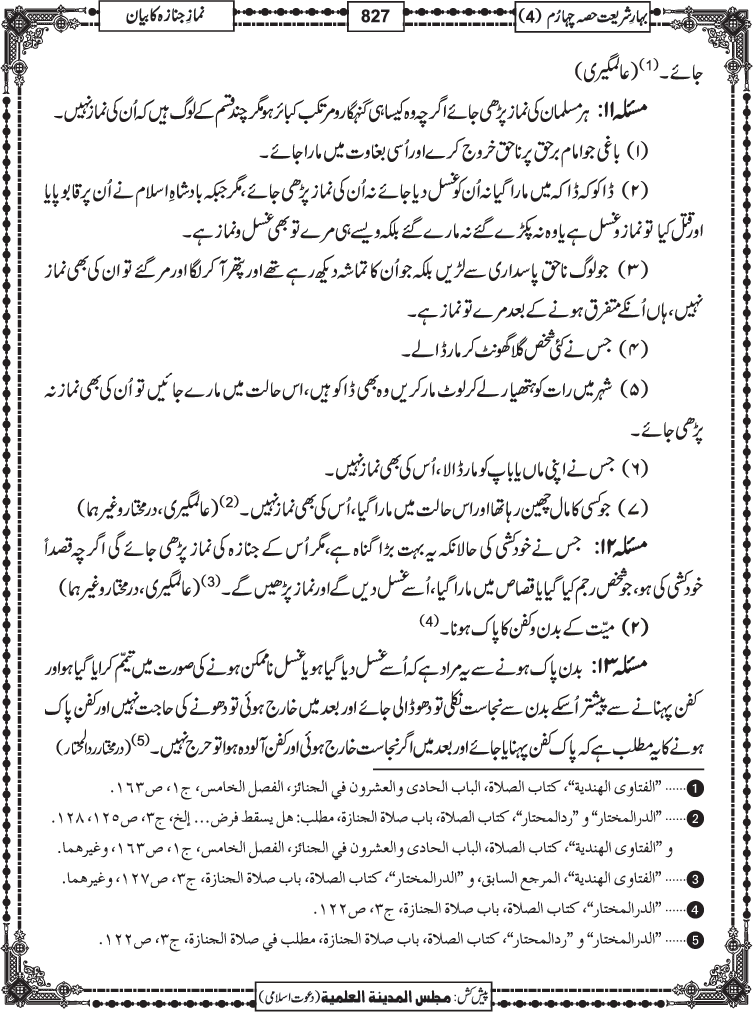 بہارِ شریعت حصہ چہارم (4)
827
نمازِ جنازہ کا بیان
جائے۔(1) (عالمگیری)
مسئلہ ۱۱: ہر مسلمان کی نماز پڑھی جائے اگرچہ وہ کیسا ہی گنہگار و مرتکب کبائر ہو مگر چند قسم کے لوگ ہیں کہ اُن کی نماز نہیں۔
(۱) باغی جو امام برحق پر ناحق خروج کرے اور اُسی بغاوت میں مارا جائے۔
(۲) ڈاکو کہ ڈاکہ میں مارا گیا نہ اُن کو غسل دیا جائے نہ اُن کی نماز پڑھی جائے، مگر جبکہ بادشاہِ اسلام نے اُن پر قابو پایا
اور قتل کیا تو نماز و غسل ہے یا وہ نہ پکڑے گئے نہ مارے گئے بلکہ ویسے ہی مرے تو بھی غسل و نماز ہے۔
(۳) جو لوگ ناحق پاسداری سے لڑیں بلکہ جو اُن کا تماشہ دیکھ رہے تھے اور پتھر آ کر لگا اور مر گئے تو ان کی بھی نماز
نہیں، ہاں اُنکے متفرق ہونے کے بعد مرے تو نماز ہے۔
(۴) جس نے کئی شخص گلا گھونٹ کر مار ڈالے۔
(۵) شہر میں رات کو ہتھیار لے کر لوٹ مار کریں وہ بھی ڈاکو ہیں، اس حالت میں مارے جائیں تو اُن کی بھی نماز نہ
پڑھی جائے۔
(۶) جس نے اپنی ماں یا باپ کو مار ڈالا، اُس کی بھی نماز نہیں۔
(۷) جو کسی کا مال چھین رہا تھا اور اس حالت میں مارا گیا، اُس کی بھی نماز نہیں۔(2) (عالمگیری، درمختار وغیرہما)
مسئلہ ۱۲: جس نے خودکشی کی حالانکہ یہ بہت بڑا گناہ ہے، مگر اُس کے جنازہ کی نماز پڑھی جائے گی اگرچہ قصداً
خودکشی کی ہو، جو شخص رجم کیا گیا یا قصاص میں مارا گیا، اُسے غسل دیں گے اور نماز پڑھیں گے۔(3) (عالمگیری، درمختار وغیرہما)
(۲) میّت کے بدن و کفن کا پاک ہونا۔(4)
مسئلہ ۱۳: بدن پاک ہونے سے یہ مراد ہے کہ اُسے غسل دیا گیا ہو یا غسل ناممکن ہونے کی صورت میں تیمّم کرایا گیا ہو اور
کفن پہنانے سے پیشتر اُسکے بدن سے نجاست نکلی تو دھو ڈالی جائے اور بعد میں خارج ہوئی تو دھونے کی حاجت نہیں اور کفن پاک
ہونے کا یہ مطلب ہے کہ پاک کفن پہنایا جائے اور بعد میں اگر نجاست خارج ہوئی اور کفن آلودہ ہوا تو حرج نہیں۔(5) (درمختار، ردالمحتار)
1 ...... "الفتاوی الهندية"، کتاب الصلاة، الباب الحادی والعشرون في الجنائز، الفصل الخامس، ج۱، ص۱۶۳.
2 ...... "الدرالمختار" و "ردالمحتار"، کتاب الصلاة، باب صلاة الجنازة، مطلب: هل یسقط فرض... إلخ، ج۳، ص۱۲۵، ۱۲۸.
و "الفتاوی الهندية"، کتاب الصلاة، الباب الحادی والعشرون في الجنائز، الفصل الخامس، ج۱، ص۱۶۳، وغیرهما.
3 ...... "الفتاوی الهندية"، المرجع السابق، و "الدرالمختار"، کتاب الصلاة، باب صلاة الجنازة، ج۳، ص۱۲۷، وغیرهما.
4 ...... "الدرالمختار"، کتاب الصلاة، باب صلاة الجنازة، ج۳، ص۱۲۲.
5 ...... "الدرالمختار" و "ردالمحتار"، کتاب الصلاة، باب صلاة الجنازة، مطلب في صلاة الجنازة، ج۳، ص۱۲۲.
پیش کش: مجلس المدينة العلمية (دعوتِ اسلامی)